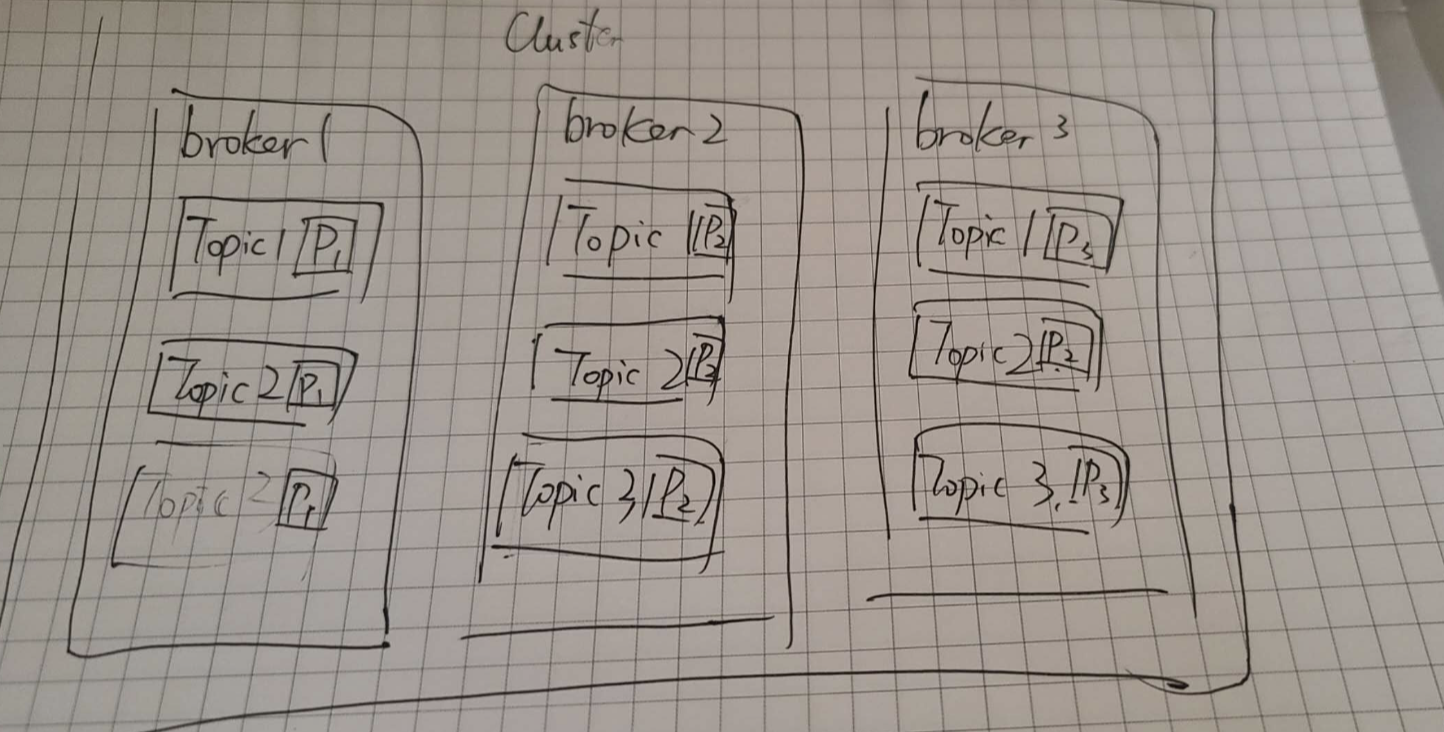 Cluster
broker 1
Topic 1 P1
Topic 2 P1
Topic 2 P1
broker 2
Topic 1 P2
Topic 2 P3
Topic 3 P2
broker 3
Topic 1 P3
Topic 2 P2
Topic 3 P3